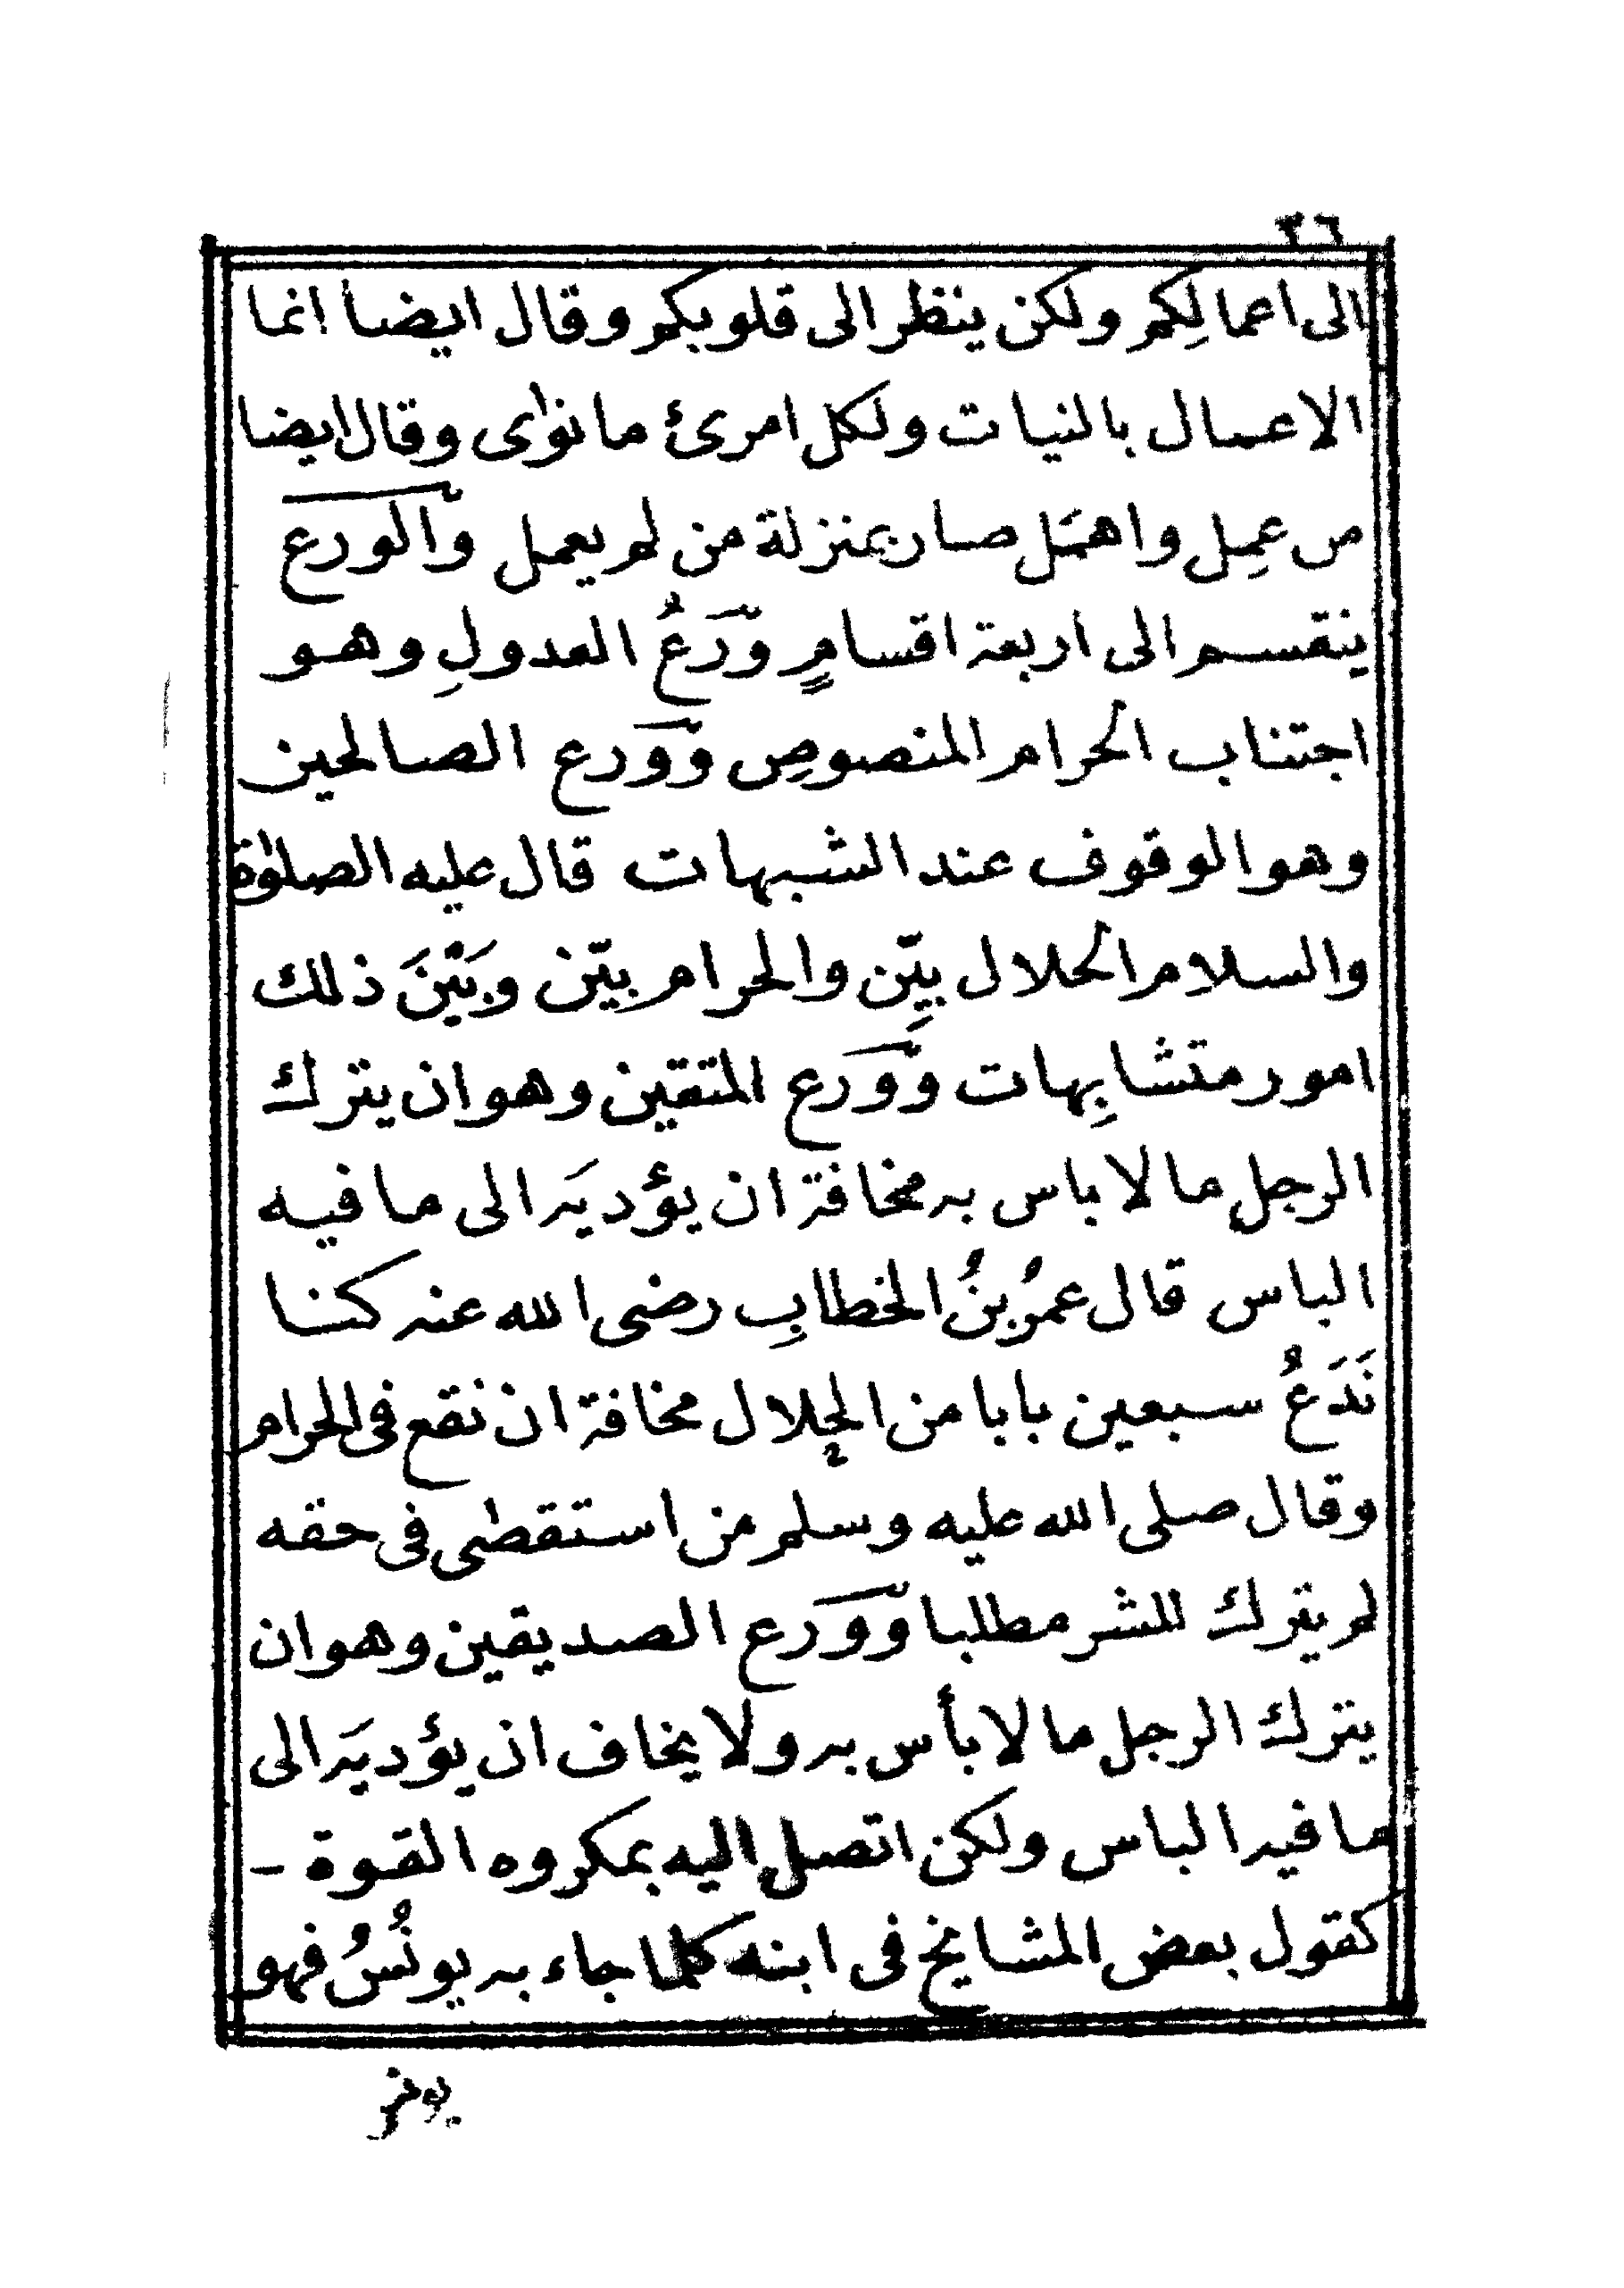 ٣٦
الى اعمالِكم ولكن ينظر الى قلوبكم وقال ايضا انما
الاعمال بالنيات ولكل امرئ ما نوٰى وقال ايضا
من عمِل واهمَل صار بمنزلة من لم يعمل والورع
ينقسم الى اربعة اقسامٍ ورَعُ العدولِ وهو
اجتناب الحرام المنصوصِ وورع الصالحين
وهو الوقوف عند الشبهات قال عليه الصلوٰة
والسلام الحلال بيّن والحرام بيّن وبَيْنَ ذلك
امور متشابِهات وورع المتقين وهو ان يترك
الرجل ما لا باس به مخافة ان يؤديَه الى ما فيه
الباس قال عمرُ بنُ الخطابِ رضى الله عنه كنا
نَدَعُ سبعين بابا من الحلال مخافة ان نقع فى الحرام
وقال صلى الله عليه وسلم من استقطى فى حقه
لم يترك للشر مطلبا وورع الصديقين وهو ان
يترك الرجل ما لا بأس به ولا يخاف ان يؤديَه الى
ما فيه الباس ولكن اتصل اليه بمكروه القوة -
كقول بعض المشايخ فى ابنه كلما جاء به يونُسُ فهو